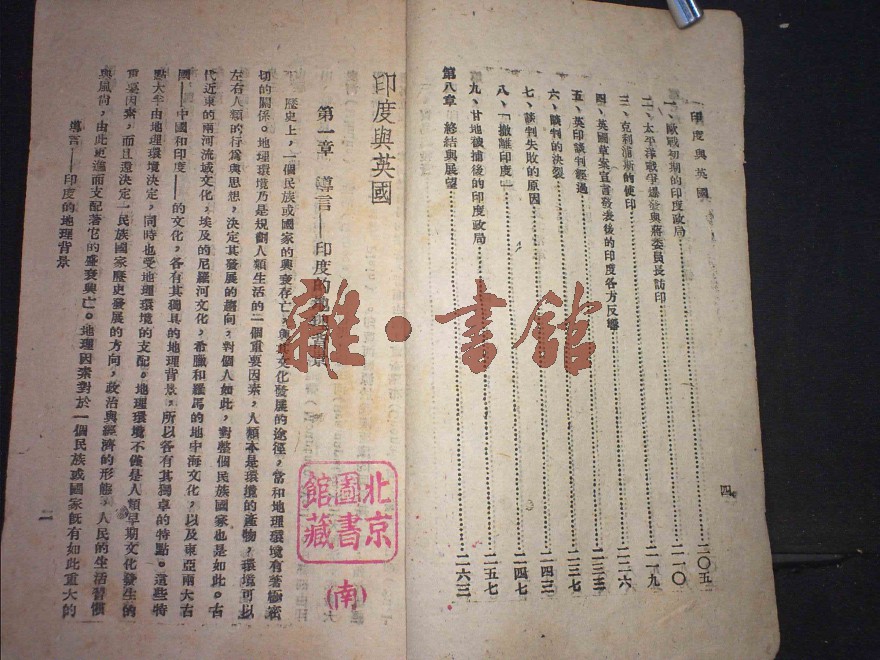 印度與英國
一、歐戰初期的印度政局……二〇五
二、太平洋戰爭爆發與蔣委員長訪印……二一〇
三、克利浦斯的使印……二一九
四、英國草案宣言發表後的印度各方反響……二二六
五、英印談判經過……二三三
六、談判的決裂……二三七
七、談判失敗的原因……二四三
八、「撤離印度」……二四七
九、甘地被捕後的印度政局……二五七
第八章 終結與展望……二六三
四
印度與英國
第一章 導言——印度的地理背景
歷史上，一個民族或國家的興衰存亡，與其文化發展的途徑，當和地理環境有著極密
切的關係。地理環境乃是規劃人類生活的一個重要因素，人類本是環境的產物，環境可以
左右人類的行為與思想，決定其發展的趨向，對個人如此，對整個民族國家也是如此。古
代近東的兩河流域文化，埃及的尼羅河文化，希臘和羅馬的地中海文化，以及東亞兩大古
國——中國和印度——的文化，各有其獨具的地理背景，所以各有其獨卓的特點。這些特
點大半由地理環境決定，同時也受地理環境的支配。地理環境不僅是人類早期文化發生的
重要因素，而且還決定一民族國家歷史發展的方向，政治與經濟的形態，人民的生活習慣
與風尚，由此更進而支配著它的盛衰興亡。地理因素對於一個民族或國家既有如此重大的
導言——印度的地理背景
雜·書館
北京
圖書
館藏
(南)